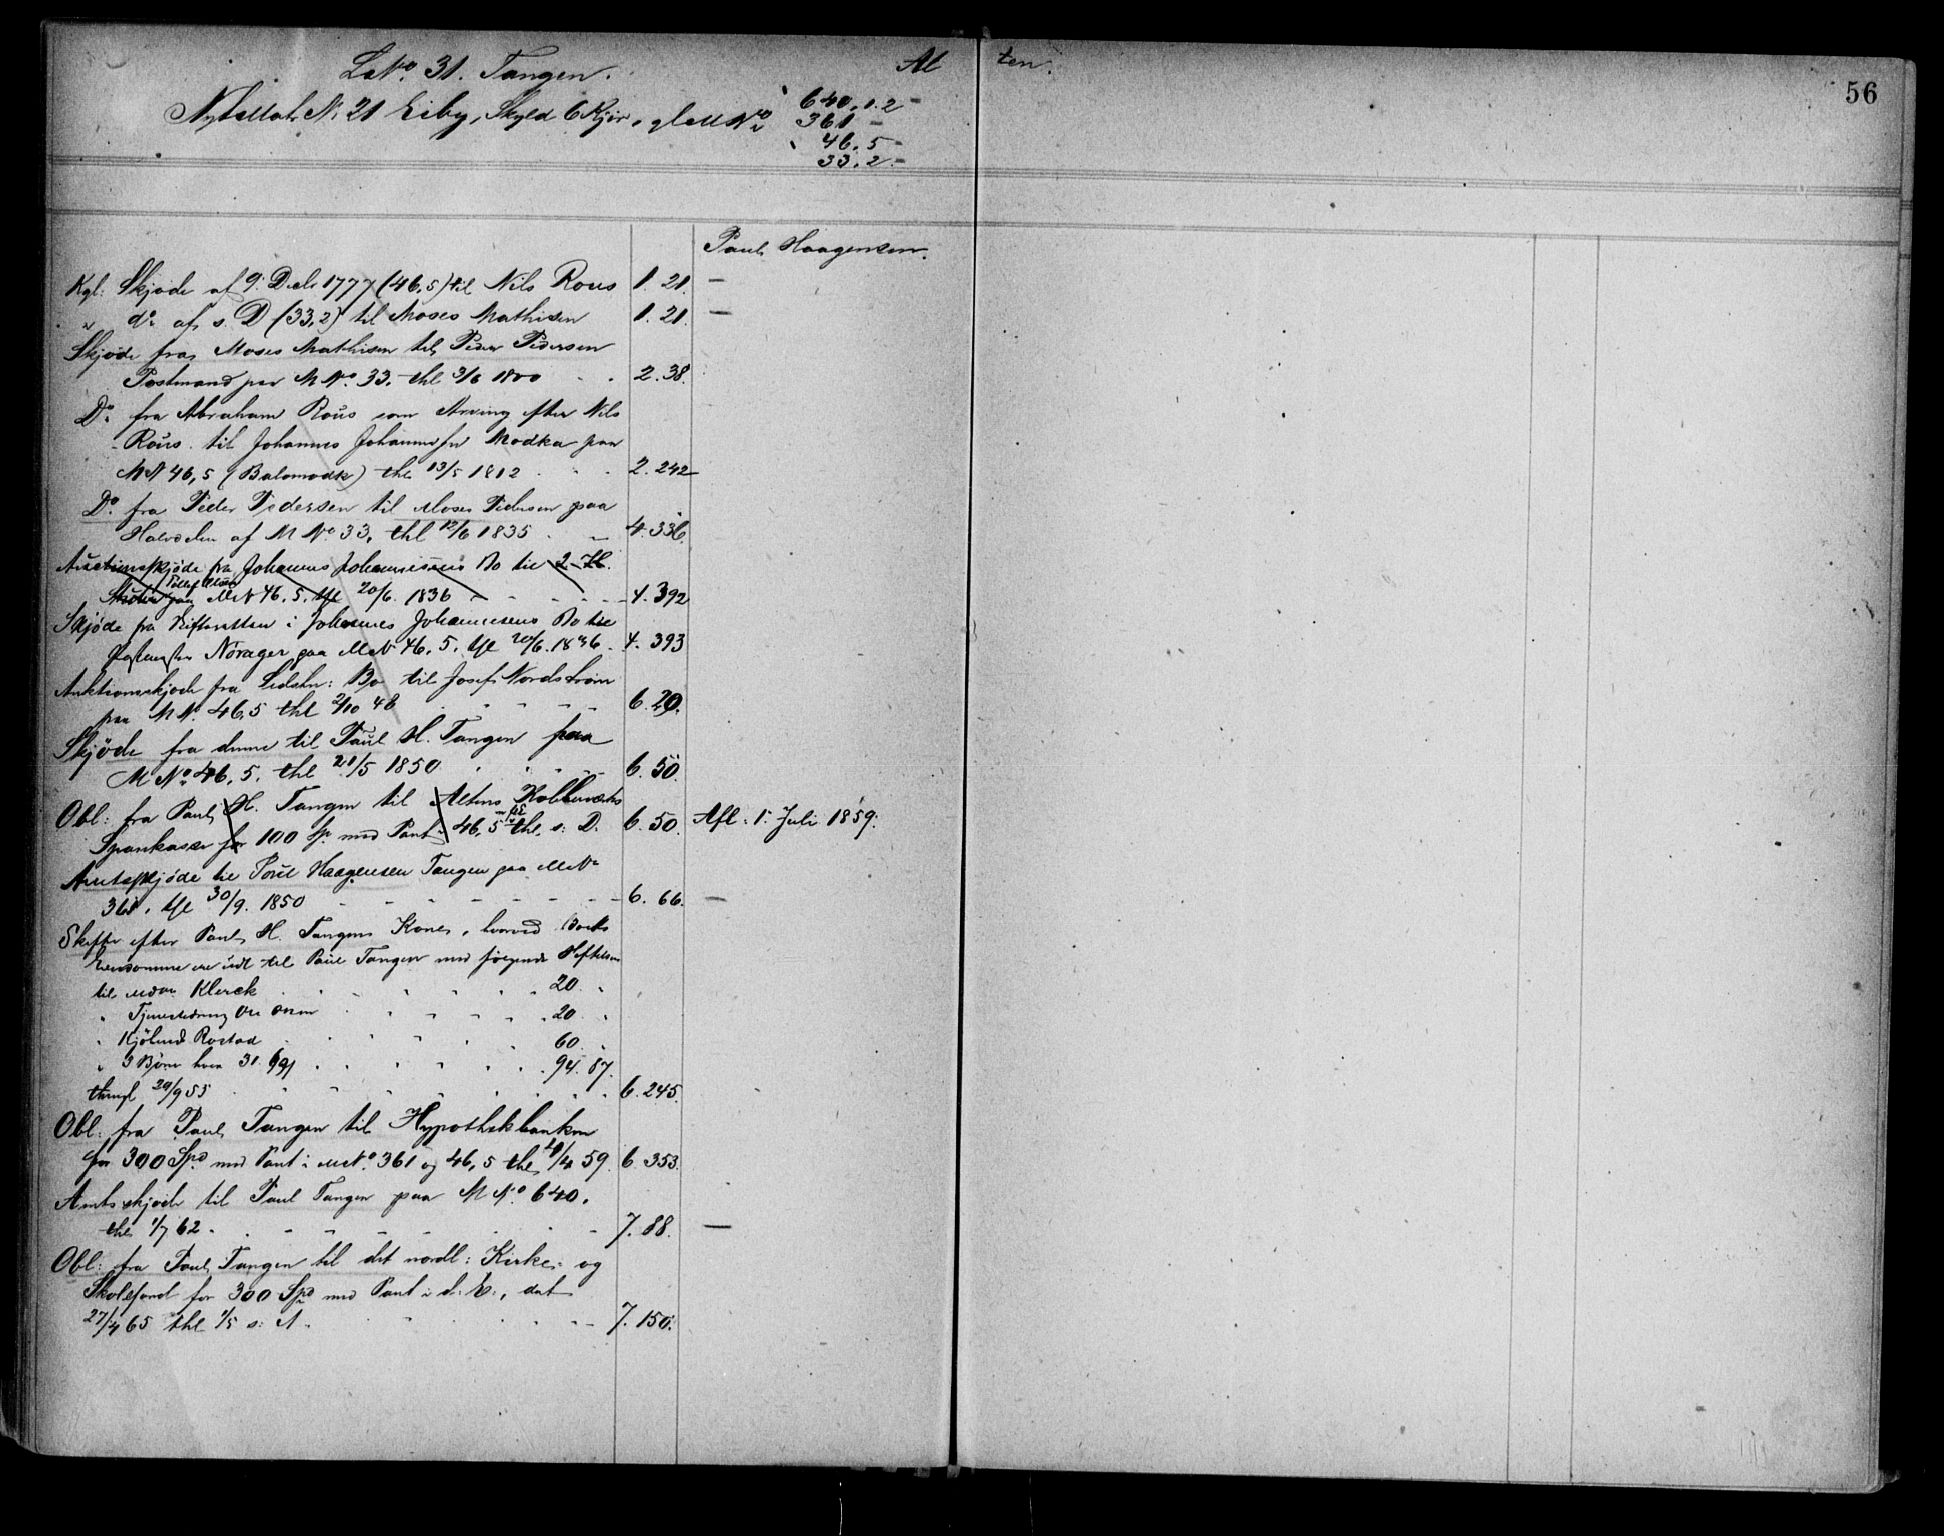 LNo. 31. Tangen.
Al ten.
56
Ny Matr. N. 21 Eiby, Skyld 6 Kjør, gl MNo 640, 1.2 -
361 -
46, 5 -
33, 2 -
Paul Haagensen.
Kgl: Skjøde af 9. Decbr 1777 (46,5) til Nils Rous 1. 21. —
" do af s. D (33,2) til Moses Mathisen 1. 21. —
Skjøde fra Moses Mathisen til Peder Pedersen
Postmand paa M No. 33. thl 3/6 1800 2. 38.
Do fra Abraham Rous som Arving efter Nils
Rous til Johannes Johannessen Modka paa
MN 46,5 (Balomodk) thl 13/5 1812 2. 242
Do. fra Peder Pedersen til Moses Pedersen paa
Halvdelen af M No 33. thl 12/6 1835 4. 336.
Auctionsskjøde fra Johannes Johannesens Bo til
Tollef Olsen paa MN 46, 5. thl 20/6. 1836 4. 392
Skjøde fra Skifteretten i Johannes Johannesens Bo til
Norager paa MN 46, 5. thl 20/6. 1836. 4. 393
Auktionsskjøde fra Bo til Josef Nordstrøm
paa M No. 46,5 thl 2/10 48 6. 29.
Skjøde fra denne til Paul H. Tangen paa
M No. 46, 5. thl 21/5 1850. 6. 50.
Obl: fra Paul H. Tangen til Altens Kobberværks
Sparekasse for 100 Sp. med Pant i 46,5 thl. s. D. 6. 50. Afl. 1. Juli 1859.
Amtsskjøde til Poul Haagensen Tangen paa MNo
361. thl 30/9. 1850 6. 66. —
Skifte efter Paul H. Tangens Kone, hvorved Boets
Eiendomme ere udl til Paul Tangen med følgende Heftelser
til Klerck 20.
" 20.
" Kjøbmd Rostad 60.
" 3 Børn hver 31. 69 94. 87.
thingl 29/9 55 6. 245.
Obl: fra Paul Tangen til Hypothekbanken
for 300 Spd med Pant i MNo. 361 og 46,5 thl 59. 6. 353.
Amtsskjøde til Paul Tangen paa M No. 640.
thl 1/7 62. 7. 88. —
Obl: fra Paul Tangen til det nordl: Kirke- og
Skolefond for 300 Spd med Pant i d: E:, dat
27/4 65 thl 1/5 s: A. 7. 150.